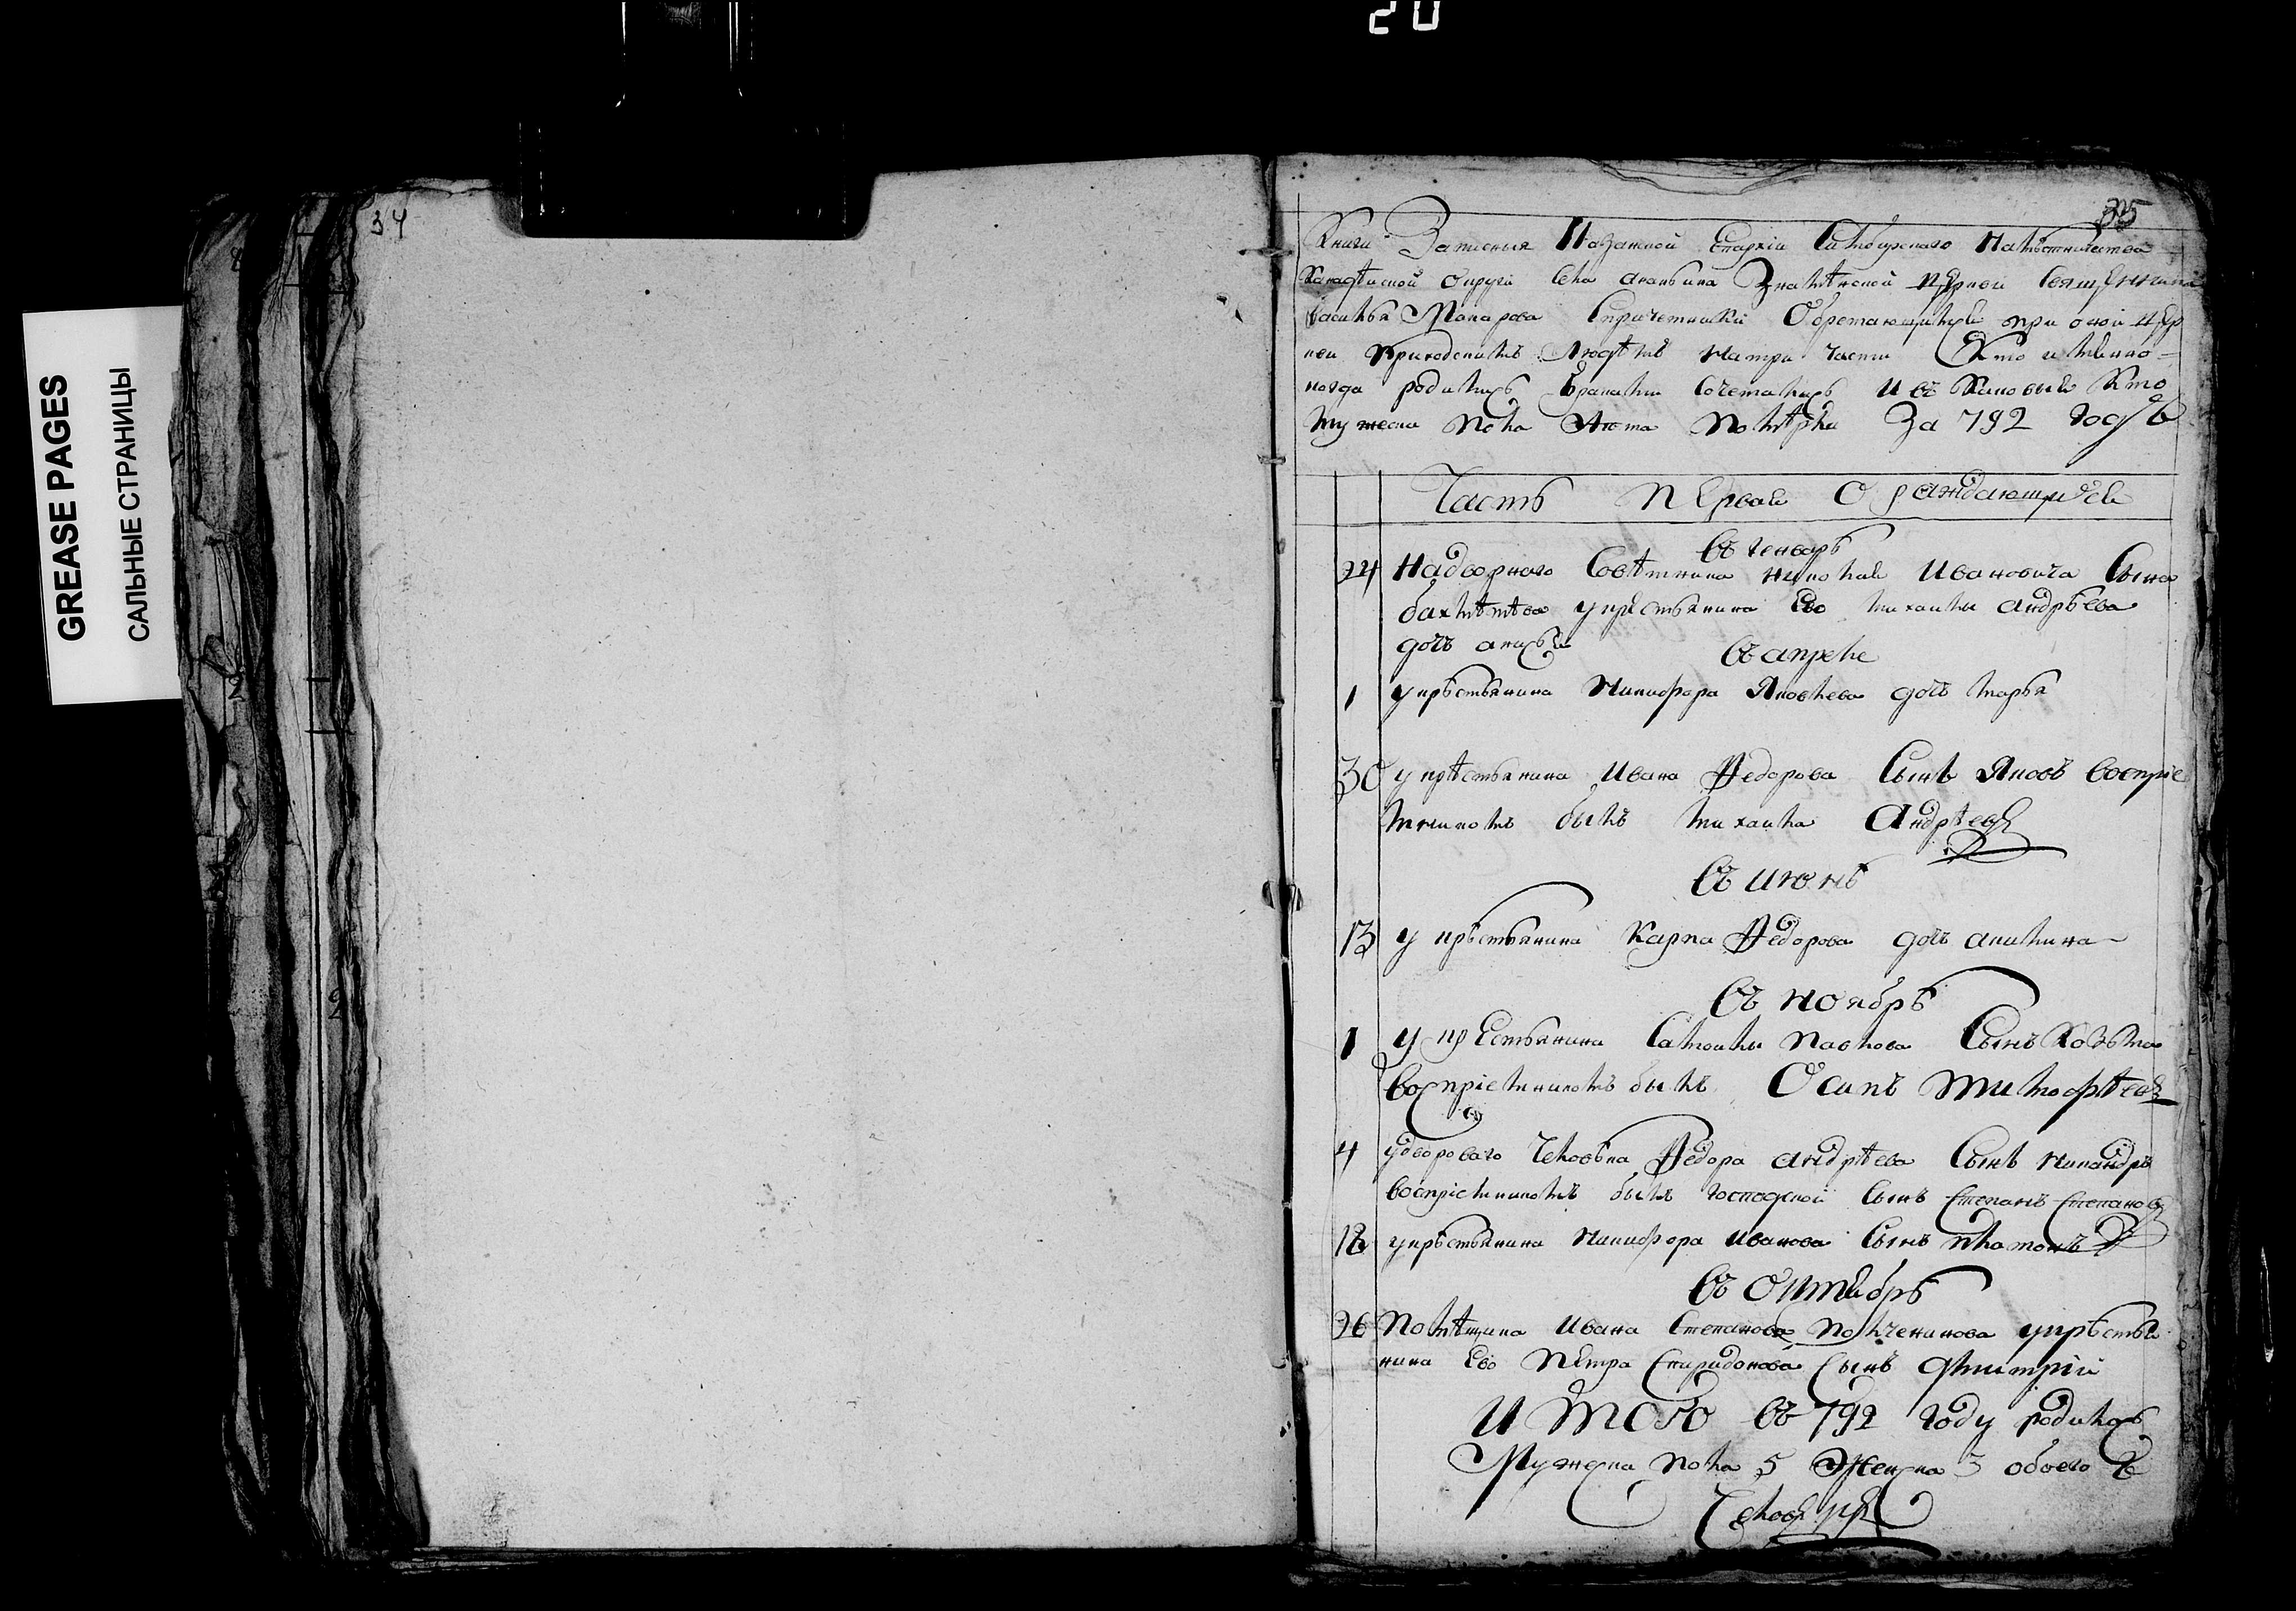 20
GREASE PAGES
САЛЬНЫЕ СТРАНИЦЫ
34
35
Книги Записныя Казанской Епархіи Симбирскаго Намѣстничества
Канадѣиской округи села ананьина Знамѣнской цѣркви Священника
василья Макарова Спричетники Обретающимся при оной цер
кви Приходскимъ Людѣмъ натри части Кто имянно
когда родились браками Сочетались И въ Каковыя Кто
мужеска пола Лета Помѣрли За 792 годъ
Часть Первая О раждающихся
въ генварѣ
24 Надворнаго Совѣтника николая Ивановича Сына
бахмѣтѣва укрестьянина Ево михаилы андрѣева
дочь
въ апреле
1 укрѣстьянина Никифора Яковлева дочь марья
30 укрѣстьянина Ивана Федорова Сынъ Яковъ воспріе
мникомъ былъ михаила Андрѣевъ
въ июнѣ
13 у крѣстьянина Карпа Федорова дочь акилина
въ ноябрѣ
1 у крестьянина Самоилы Павлова Сынъ Козьма
воспріемникомъ былъ Осипъ Тимофѣевъ
4 удвороваго Человѣка Федора андрѣева Сынъ никандръ
воспріемникомъ былъ господской Сынъ Степанъ Степановъ
18 укрѣстьянина Никифора иванова Сынъ Платонъ
въ Октябрѣ
26 Помѣщика Ивана Степанова Полчанинова укрѣстья
нина Ево Петра Спиридонова Сынъ дмитрій
И Того въ 792 году родилось
Мужеска пола 5 Женска 3 обоего 8
Человекъ